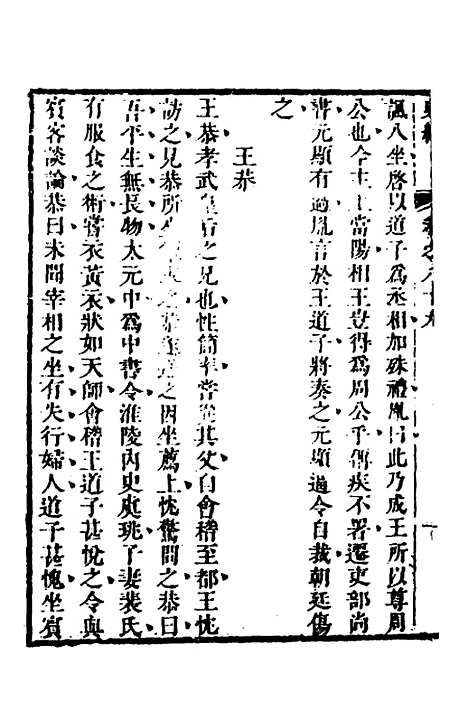 諷八坐啓以道子爲丞相加殊禮胤曰此乃成王所以尊周
公也今主上當陽相王豈得爲周公乎稱疾不署遷吏部尚
書元顯有過胤言於王道子將奏之元顯逼令自裁朝廷傷
之
王恭
王恭孝武皇后之兄也性簡率嘗從其父自會稽至都王忱
訪之見恭所坐六尺之簟忱謂之因坐薦上忱驚問之恭曰
吾平生無長物太元中爲中書令淮陵內史虞珧子妻裴氏
有服食之術嘗衣黃衣狀如天師會稽王道子甚悅之令與
賓客談論恭曰未聞宰相之坐有失行婦人道子甚愧坐賓